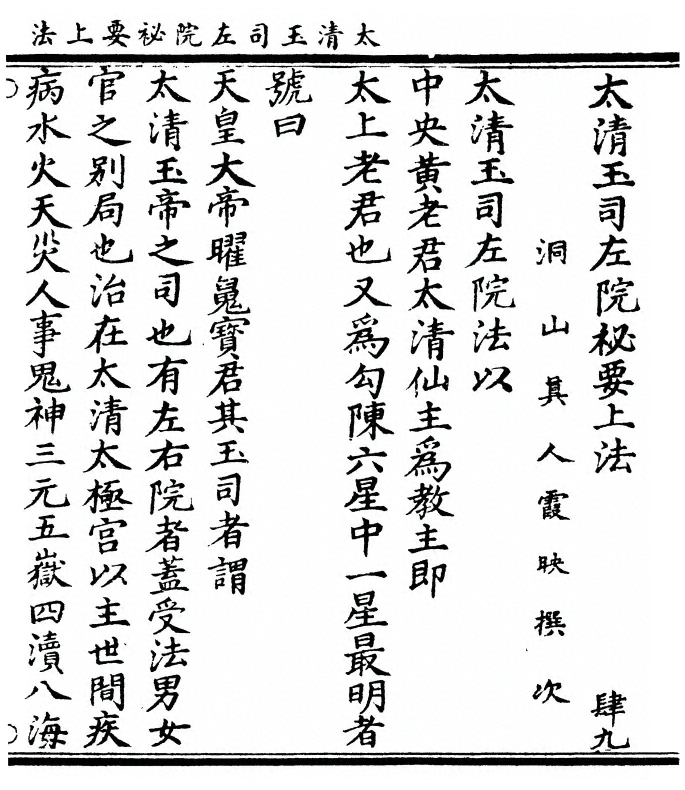 太清玉司左院祕要上法
太清玉司左院祕要上法　肆九
洞山眞人霞映撰次
太清玉司左院法以
中央黃老君太清仙主爲教主即
太上老君也又爲勾陳六星中一星最明者
號曰
天皇大帝曜鬼寶君其玉司者謂
太清玉帝之司也有左右院者蓋受法男女
官之别局也治在太清太極宫以主世間疾
病水火天災人事鬼神三元五嶽四瀆八海